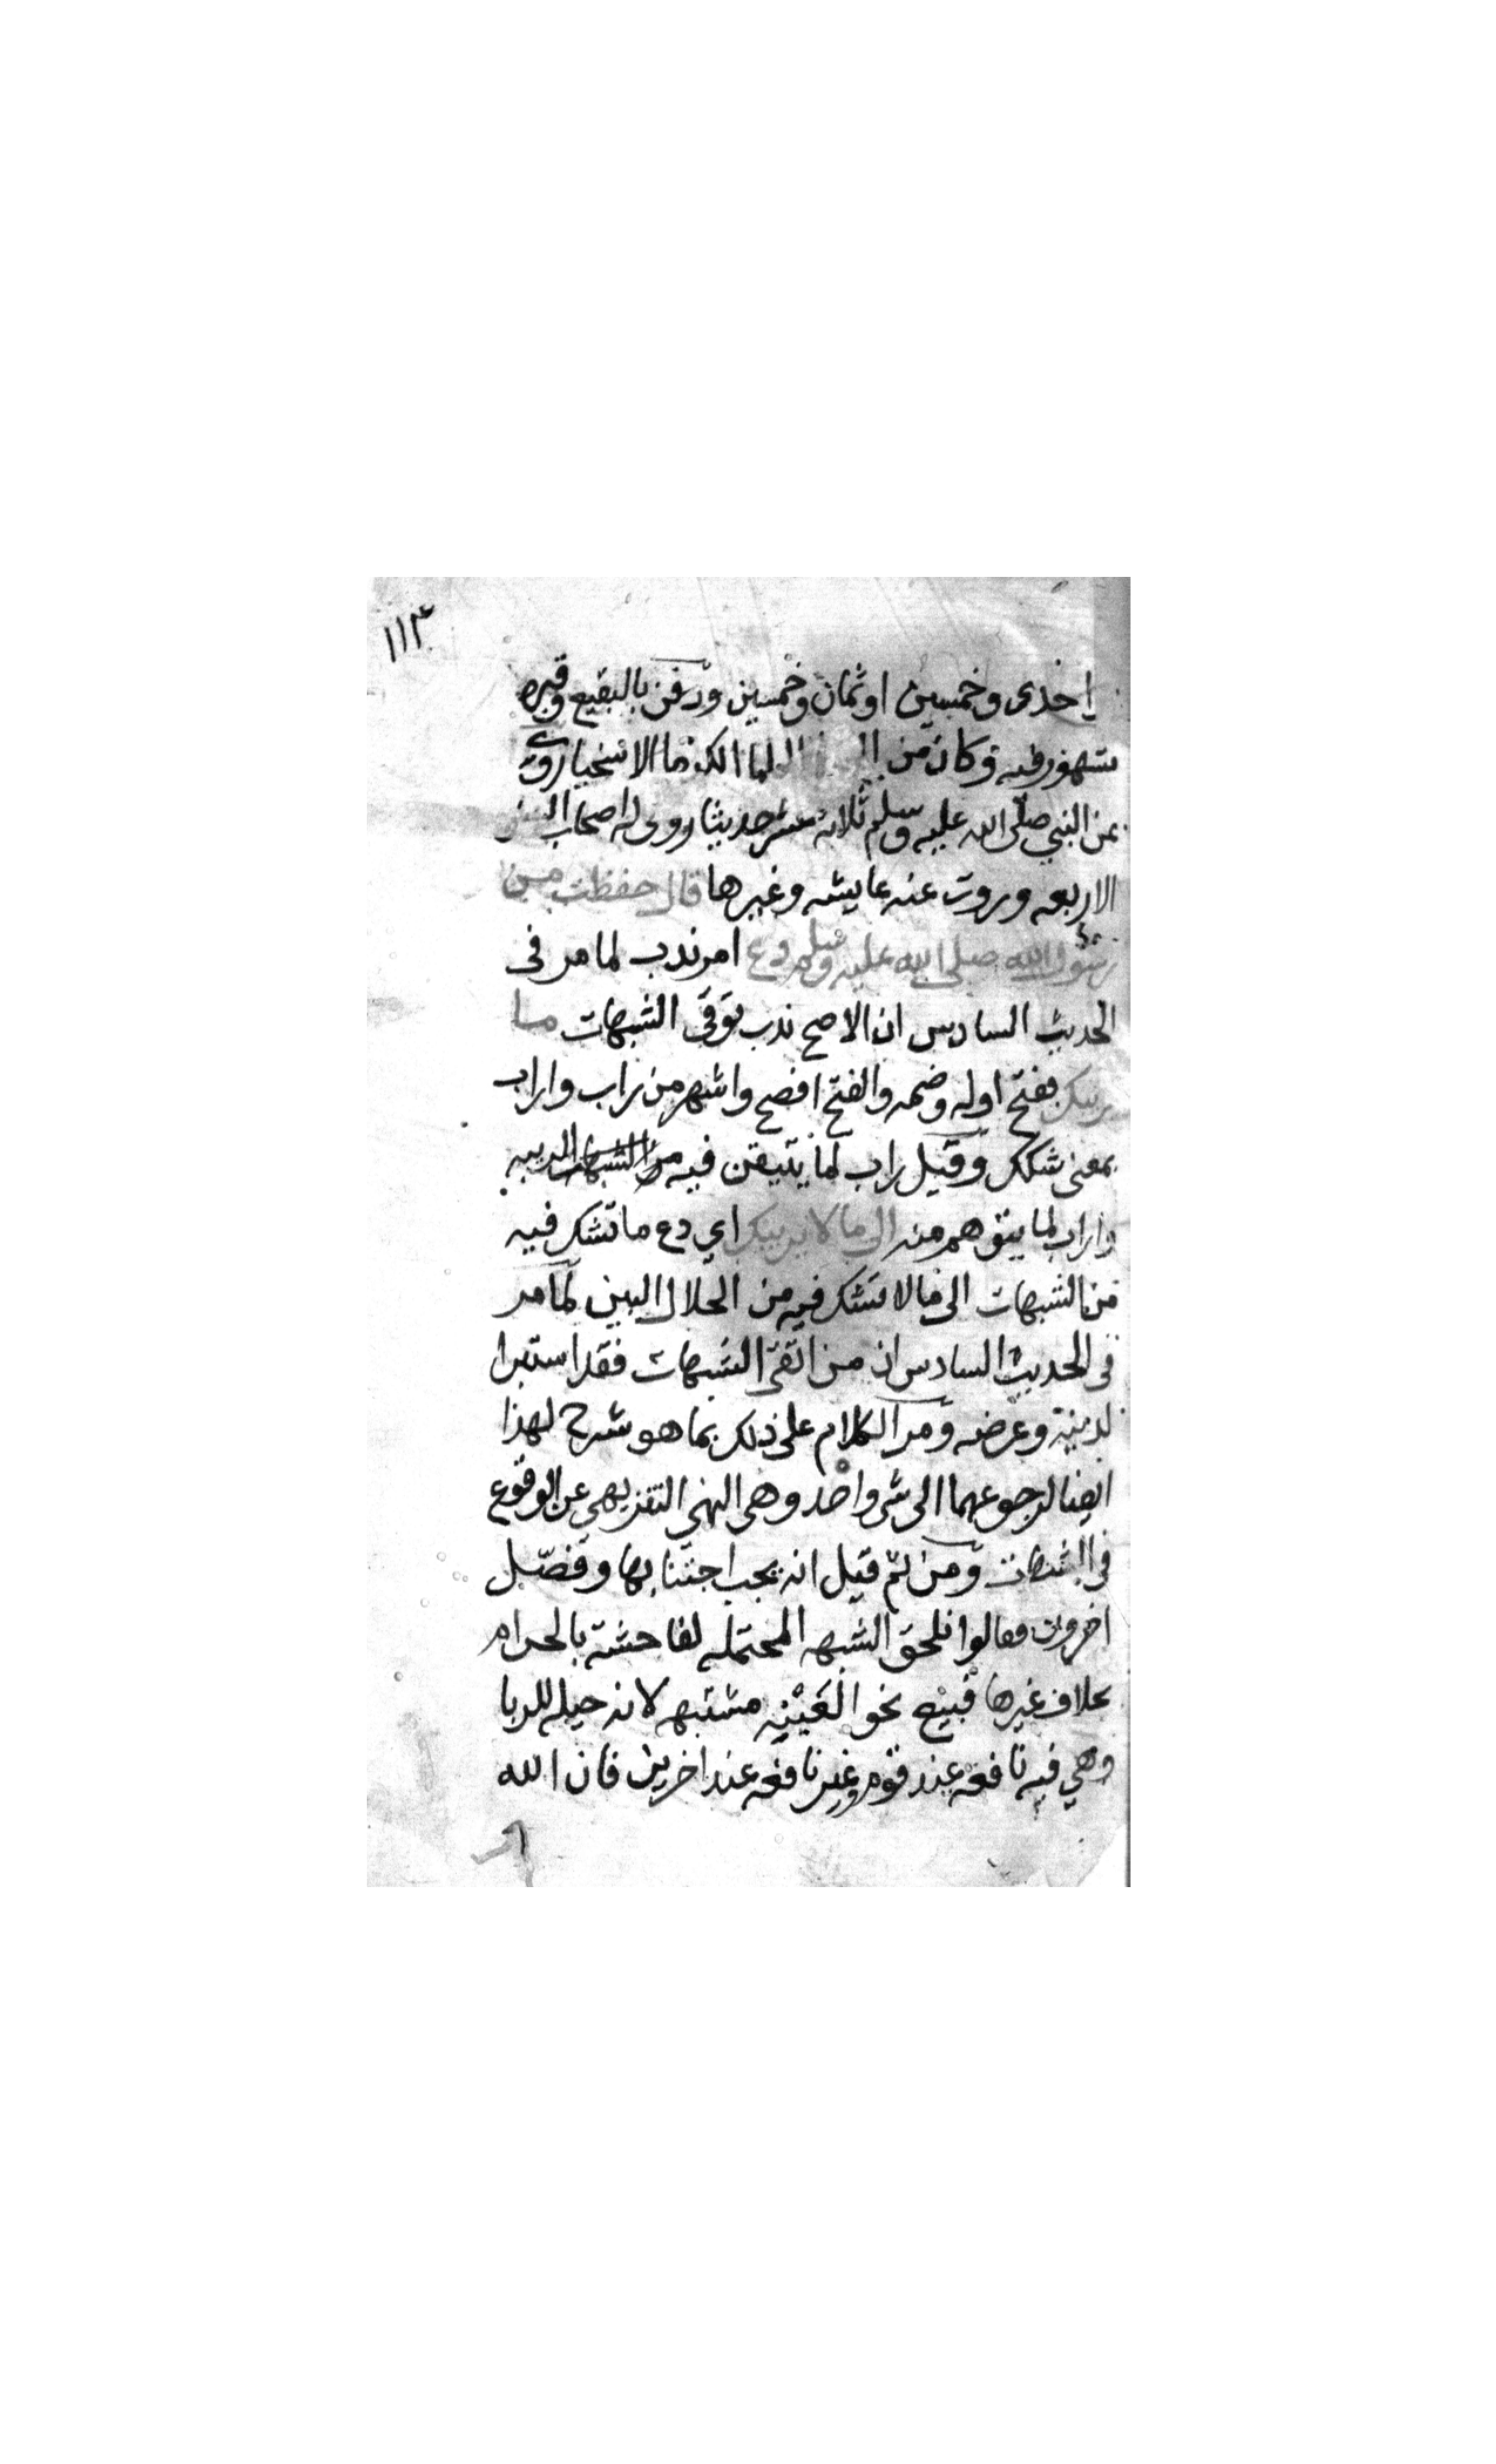 ١١٣
إحدى وخمسين او ثمان وخمسين ودفن بالبقيع وقبره
مشهور فيه وكان من الحلما الكرما الاسخيا روى
عن النبي صلى الله عليه وسلم ثلاثة عشر حديثا روى له اصحاب السنن
الاربعه وروت عنه عايشه وغيرها قال حفظت من
رسول الله صلى الله عليه وسلم دع امر ندب لما مر فى
الحديث السادس ان الاصح ندب توقى الشبهات ما
يريبك بفتح اوله وضمه والفتح افصح واشهر من راب واراب
بمعنى شكك وقيل راب لما يتيقن فيه الريبه
واراب لما يتوهم منه الى ما لا يريبك اي دع ما تشك فيه
من الشبهات الى ما لا تشك فيه من الحلال البين لما مر
فى الحديث السادس ان من اتقى الشبهات فقد استبرا
لدينه وعرضه ومر الكلام على ذلك بما هو شرح لهذا
ايضا لرجوعهما الى شى واحد وهى النهي التنزيهي عن الوقوع
فى الشبهات ومن ثم قيل انه يجب اجتنابها وفصل
اخرون فقالوا نلحق الشبهه المحتمله لفاحشة بالحرام
بخلاف غيرها فبيع نحو العينه مشتبه لانه حيله للربا
وهي فيه نافعه عند قوم وغير نافعه عند اخرين فان الله